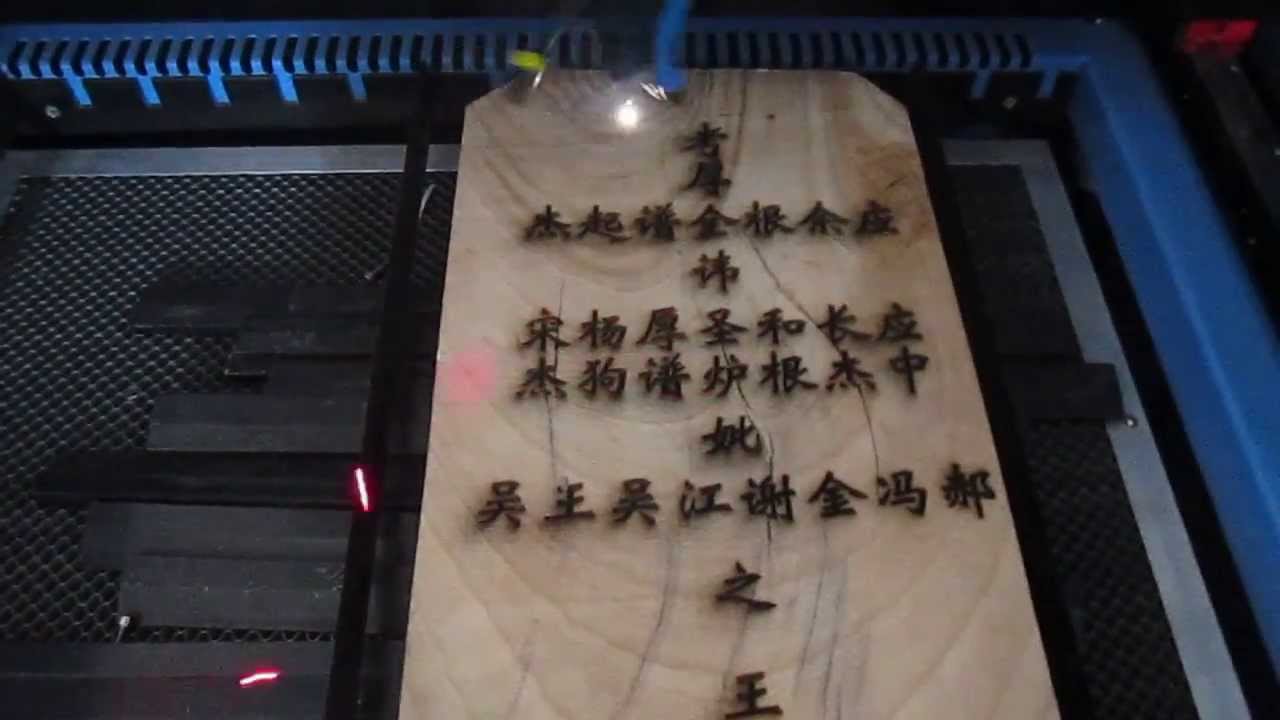 考
厚
杰起谱金根余应
讳
宋杨厚圣和长应
杰狗谱炉根杰中
妣
吴王吴江谢金冯郝
之
王